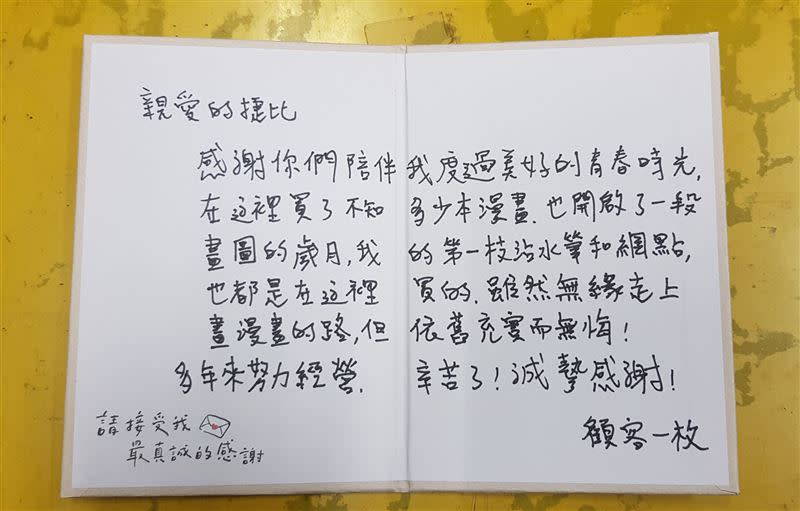 親愛的捷比
感謝你們陪伴我度過美好的青春時光,
在這裡買了不知多少本漫畫.也開啟了一段
畫圖的歲月,我的第一枝沾水筆和網點,
也都是在這裡買的.雖然無緣走上
畫漫畫的路,但依舊充實而無悔!
多年來努力經營.辛苦了!誠摯感謝!
顧客一枚
請接受我
最真誠的感謝